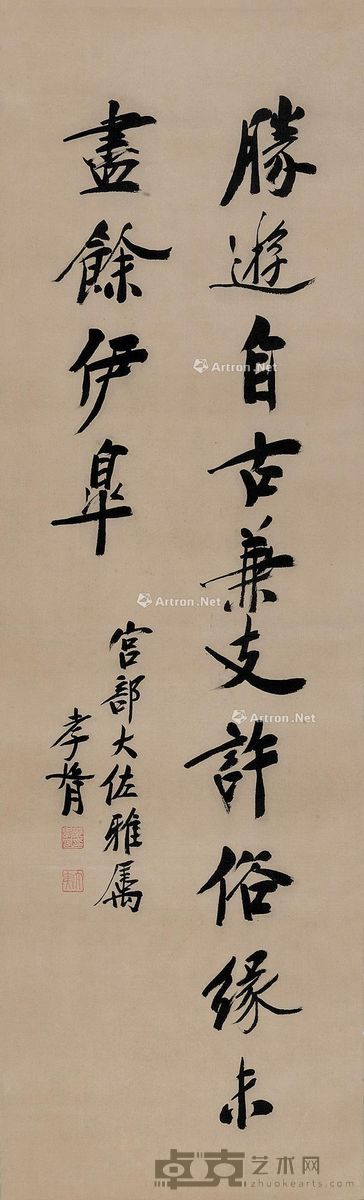 勝遊自古兼支許俗緣未
盡餘伊皐
宮部大佐雅属
孝胥
Artron.Net
Artron.Net
Artron.Net
卓克艺术网
zhuokearts.com